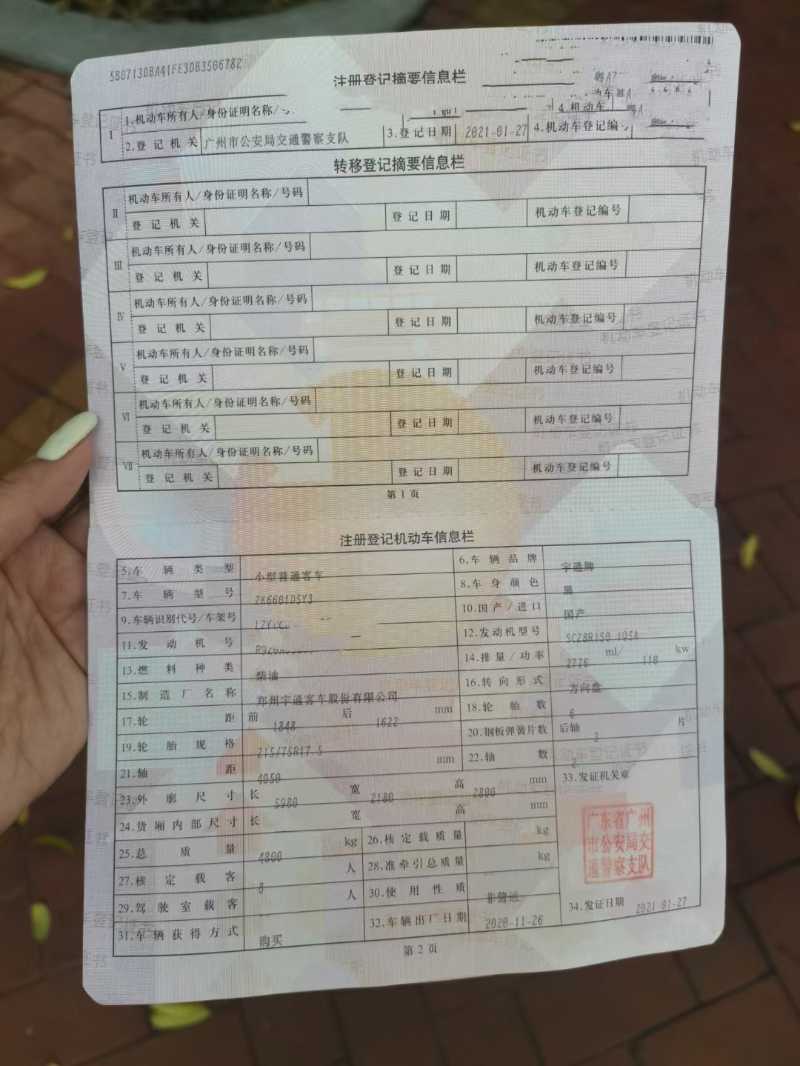 注册登记摘要信息栏
I
1.机动车所有人/身份证明名称/
2.登记机关 广州市公安局交通警察支队 3.登记日期 2021-01-27 4.机动车登记编
转移登记摘要信息栏
II 机动车所有人/身份证明名称/号码
登记机关 登记日期 机动车登记编号
III 机动车所有人/身份证明名称/号码
登记机关 登记日期 机动车登记编号
IV 机动车所有人/身份证明名称/号码
登记机关 登记日期 机动车登记编号
V 机动车所有人/身份证明名称/号码
登记机关 登记日期 机动车登记编号
VI 机动车所有人/身份证明名称/号码
登记机关 登记日期 机动车登记编号
VII 机动车所有人/身份证明名称/号码
登记机关 登记日期 机动车登记编号
第1页
注册登记机动车信息栏
5.车辆类型 小型普通客车 6.车辆品牌 宇通牌
7.车辆型号 ZK6601D5Y3 8.车身颜色 黑
9.车辆识别代号/车架号 10.国产/进口 国产
11.发动机号 12.发动机型号
13.燃料种类 柴油 14.排量/功率 2776 ml/ 110 kw
15.制造厂名称 郑州宇通客车股份有限公司 16.转向形式 方向盘
17.轮距 前 1848 后 1622 mm 18.轮胎数 6
19.轮胎规格 215/75R17.5 mm 20.钢板弹簧片数 后轴 片
21.轴距 4050 22.轴数 2
23.外廓尺寸 长 5980 宽 2180 高 2800 mm 33.发证机关章
24.货厢内部尺寸 长 宽 高 mm
25.总质量 4800 kg 26.核定载质量 kg
27.核定载客 8 人 28.准牵引总质量 kg
29.驾驶室载客 人 30.使用性质 非营运
31.车辆获得方式 购买 32.车辆出厂日期 2020-11-26 34.发证日期 2021-01-27
广东省广州
市公安局交
通警察支队
第2页